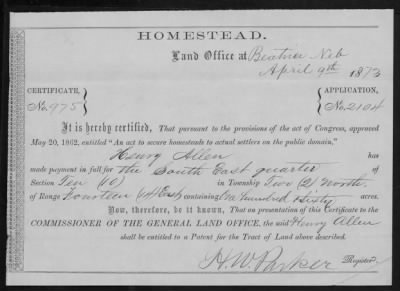 HOMESTEAD.
Land Office at Beatrice Neb
April 9th 1873
CERTIFICATE, APPLICATION,
No. 975 No. 2104
It is hereby certified, That pursuant to the provisions of the act of Congress, approved
May 20, 1862, entitled "An act to secure homesteads to actual settlers on the public domain,"
Henry Allen has
made payment in full for the South East quarter of
Section Ten (10) in Township Two (2) North
of Range Fourteen (14) East containing One hundred Sixty acres.
Now, therefore, be it known, That on presentation of this Certificate to the
COMMISSIONER OF THE GENERAL LAND OFFICE, the said Henry Allen
shall be entitled to a Patent for the Tract of Land above described.
H. W. Parker Register.